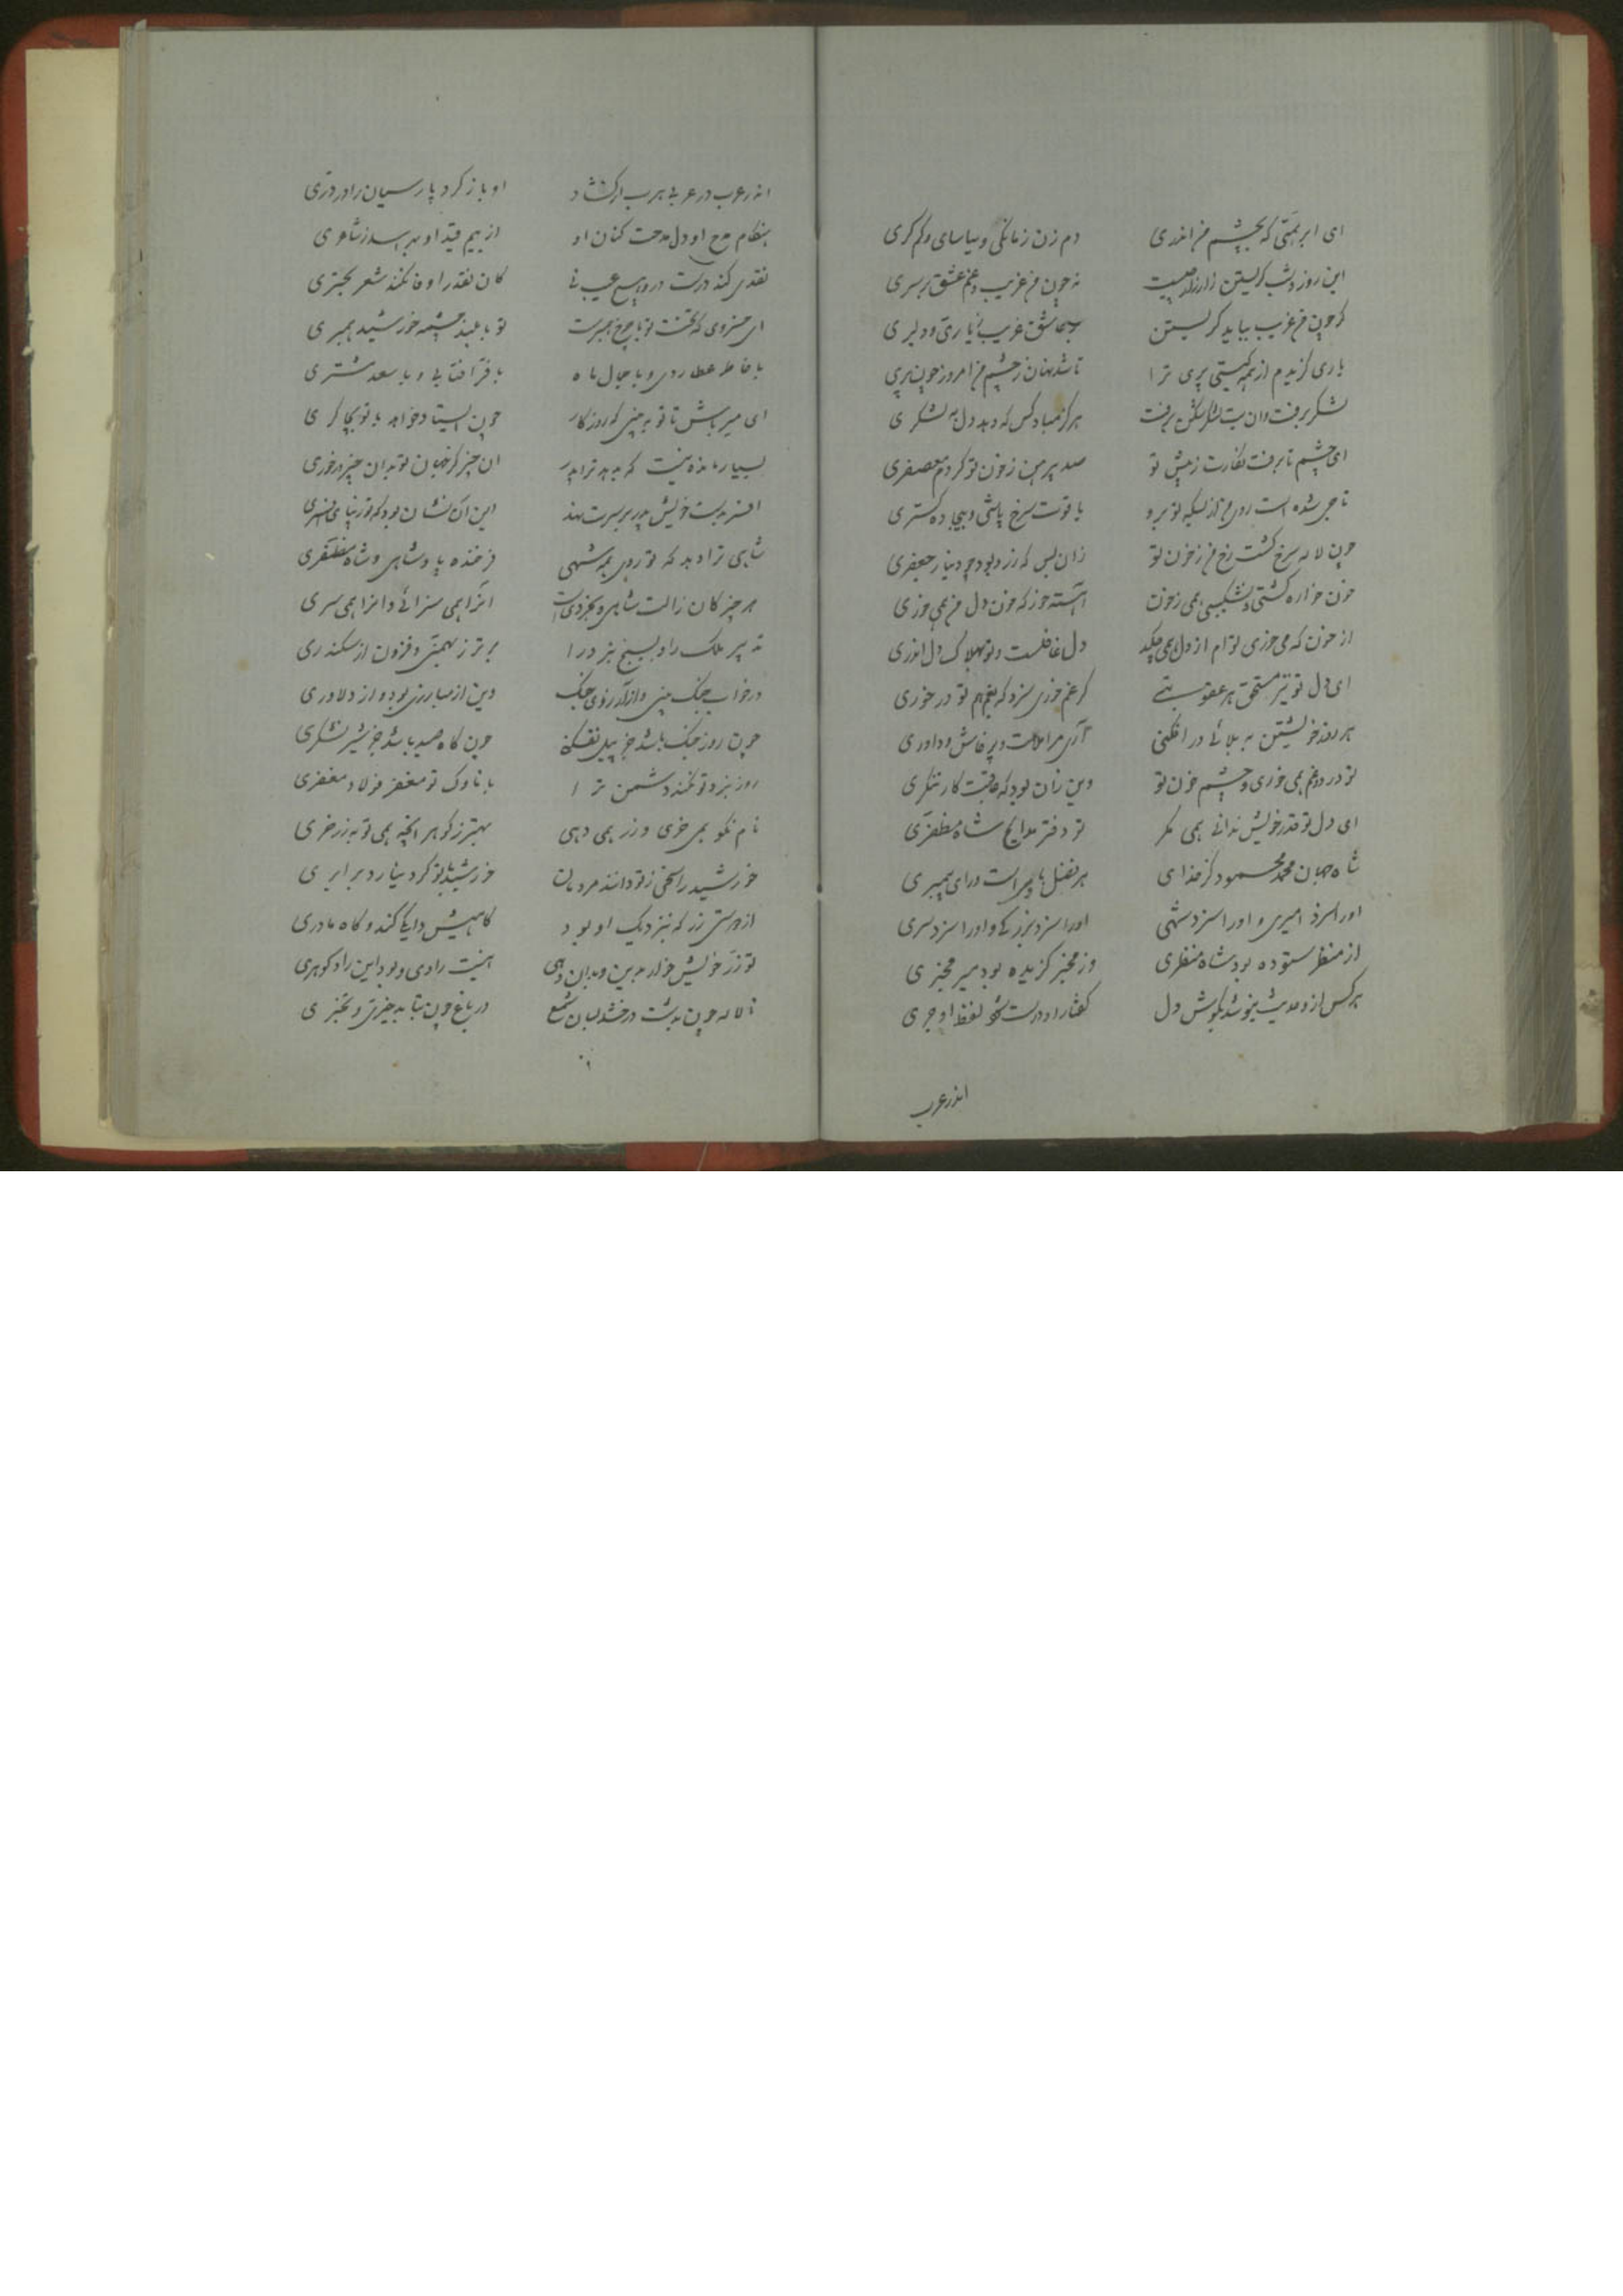 ای ابر بهمنی که بچشم من اندری دم زن زمانکی و بیاسای و کم کری
این روز و شب کریستن زار زار چیست نه چون من غریب و غم عشق بر سری
کر چون من غریب بباید کریستن عاشق غریب زیاری و دلبری
یاری کزیدم از همه کیتی پری ترا تا شد نهان ز چشم من امروز چون پری
لشکر برفت و ان بت لشکر شکن برفت هرکز مباد کس که دهد دل به لشکری
ای چشم تا برفت نکارت ز پیش تو صد پیرهن ز خون تو کردم معصفری
تا جی شده است روی من از بسکه تو برو یاقوت سرخ پاشی و بیجاده کستری
چون لاله سرخ کشت رخ من ز خون تو زان پس که زرد بود چو دینار جعفری
خون خواره کشتی و نشکیبی همی ز خون اهسته خور که خون دل من همی خوری
از خون که می خوری توام از دل همی چکد دل غافلست و تو بهلاک دل اندری
ای دل تو نیز مستحق هر عقوبتی کر غم خوری سزد که بغم هم تو در خوری
هر روز خویشتن به بلائی در افکنی آری مرا ملامت و پرخاش و داوری
تو در دو غم همی خوری و چشم خون تو وین زان بود که عاقبت کار ننکری
ای دل تو قدر خویش ندانی همی مکر تو دفتر مدایح شاه مظفری
شاه جهان محمد محمود کز خدای هر فضل یافته است ورای پیمبری
اورا سزد امیری و اورا سزد شهی اورا سزد بزرکی و اورا سزد سری
از منظر ستوده بود شاه منظری وز مخبر کزیده بود میر مخبری
هر کس ازو حدیث بنیوشد بکوش دل کفتار او درست لفظ او جری
اندر عرب
اندر عرب در عربی او کشاد او باز کرد پارسیان را در دری
هنکام مدح او دل مدحت کنان او از بیم او بهراسد ز شاعری
نقدی کند درست و در و هیچ عیب نی کان نقد را وفا نکند شعر بحتری
ای خسروی که تخت تو با چرخ همبرست تو با بلند چشمه خورشید همبری
با خاطر عطاردی و با جمال ماه با فر آفتابی و با سعد مشتری
ای میر باش تا تو به بینی که روزکار چون ایستاد خواهد با تو بچاکری
بسیار مانده نیست که بدهد ترا پدر ان چیز کز جهان تو بدان چیز در خوری
افسر بدست خویش پدر بر سرت نهد این آن نشان بود که تو زیبای افسری
شاهی ترا دهد که تو روی همه شهی فرخنده پادشاهی و شاه مظفری
هر چیز کان ز الت شاهی و خسرویست انرا همی سزائی و انرا همی سری
تدبیر ملک را و بسیج نبرد را برتر ز بهمنی و فزون از سکندری
در خواب جنک بینی و از آرزوی جنک وین از مبارزی بود و از دلاوری
چون روز جنک باشد جز پیل نفکنی چون کاه صید باشد جز شیر نشکری
روز نبرد تو نکند دشمن ترا با ناوک تو مغفر فولاد مغفری
نام نکو همی خری و زر همی دهی بهتر ز کوهر انچه همی تو به زر خری
خورشید را سخی ز تو دانند مردمان خورشید با تو کرد نیارد برابری
از دوستی زر که بنزدیک او بود کاهیش دایکی کند و کاه مادری
تو زر خویش خوار بدین و بدان دهی اینت رادی و بود این راد کوهری
تا لاله چون بدشت درخشد بسان شمع در باغ چون بتابد خیری و عنبری